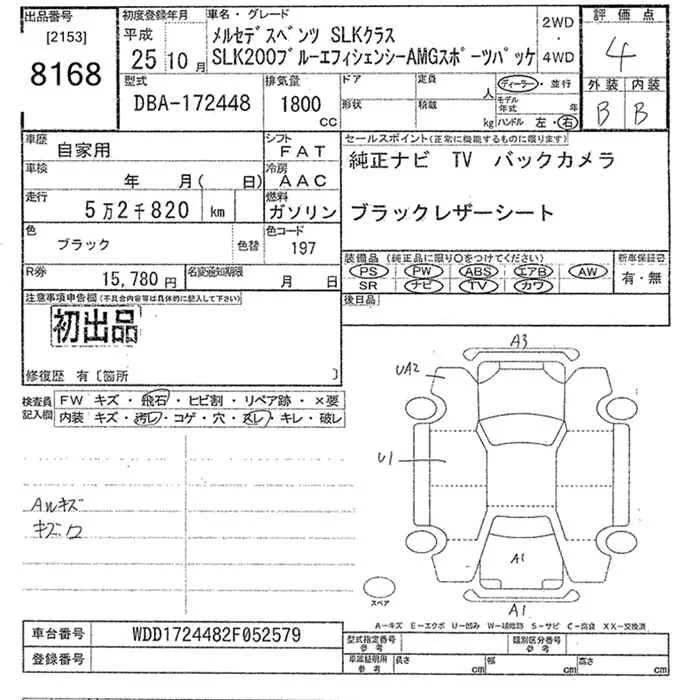 出品番号
[2153]
8168
初度登録年月
平成
25年10月
車名・グレード
メルセデスベンツ SLKクラス
SLK200ブルーエフィシェンシーAMGスポーツパッケ
2WD
・
4WD
評価点
4
外装 内装
B B
型式
DBA-172448
排気量
1800
CC
ドア
定員
人
形状
積載
kg
ディーラー・並行
モデル年式 年
ハンドル 左・右
車歴
自家用
シフト
FAT
車検
年 月( 日)
冷房
AAC
走行
5万2千820 km
燃料
ガソリン
色
ブラック
色替
色コード
197
R券
15,780円
名変通知期限
月 日
セールスポイント(正常に機能するものに限ります)
純正ナビ TV バックカメラ
ブラックレザーシート
装備品(純正品に限り○をつけてください)
PS PW ABS エアB AW
SR ナビ TV カワ
新車保証書
有・無
後日品
注意事項申告欄(不具合内容等は具体的に記入して下さい)
初出品
修復歴 有〔箇所 〕
検査員
記入欄
FW キズ・飛石・ヒビ割・リペア跡・×要
内装 キズ・汚レ・コゲ・穴・スレ・キレ・破レ
AWキズ
キズロ
A3
UA2
U1
A1
A1
スペア
A-キズ E-エクボ U-凹み W-補修跡 S-サビ C-腐食 XX-交換済
車台番号
WDD1724482F052579
登録番号
型式指定番号
参考
類別区分番号
参考
車庫証明用
参考
長さ cm
幅 cm
高さ cm